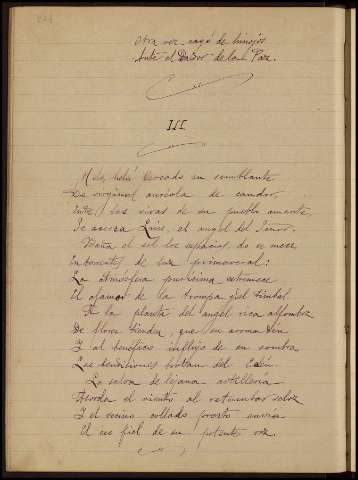 Otra vez cayó de hinojos
Ante el Dador de la Paz.
III
su semblante
De virginal aureola de candor,
Entre los vivas de su pueblo amante,
Se acerca Luis, el angel del Señor.
Baña el sol los espacios, do se mece
de luz primaveral:
La atmosfera purisima estremece
El clamor de la trompa y el timbal.
Pa la planta del angel rica alfombra
De flores tienden, que su aroma dan
I al benéfico influjo de su sombra
Las bendiciones brotan del
La salva de lejana artillería
Acorda el viento al retumbar veloz
I el vecino collado pronto envia
El eco fiel de su potente voz.